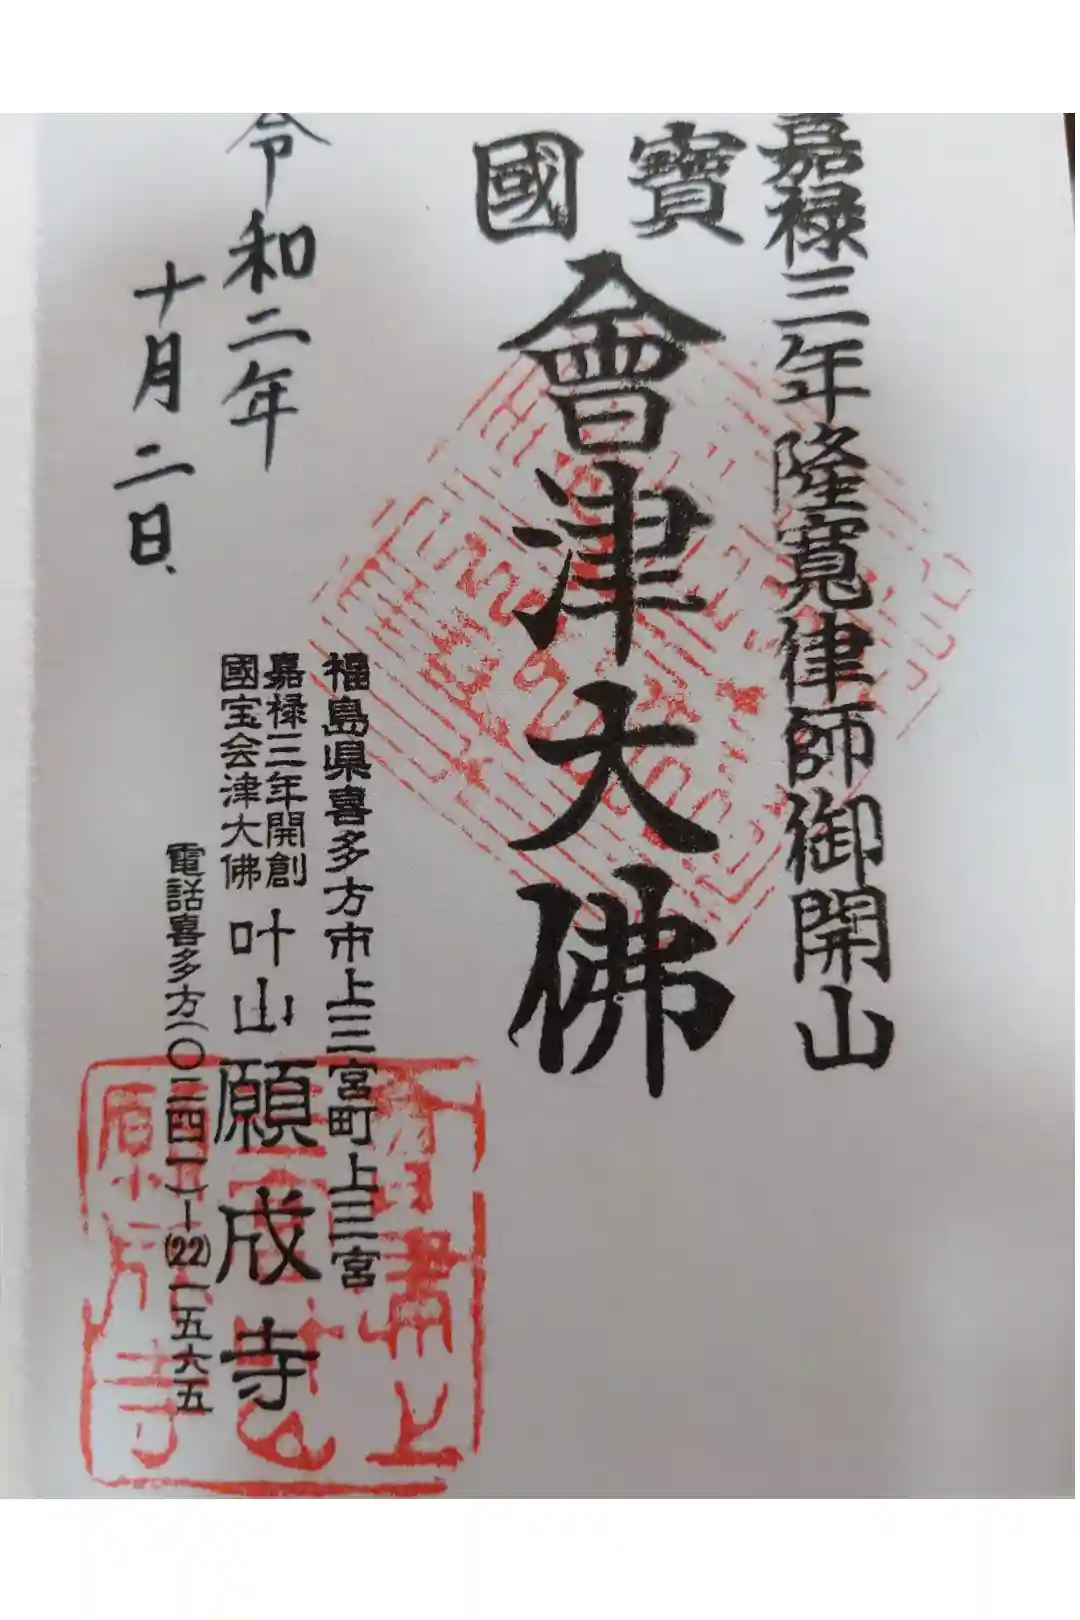 嘉禄三年隆寛律師御開山
寶國
會津大佛
福島県喜多方市上三宮町上三宮
嘉禄三年開創
國宝会津大佛
叶山願成寺
電話喜多方(〇二四一)ー(22)一五六五
令和二年
十月二日